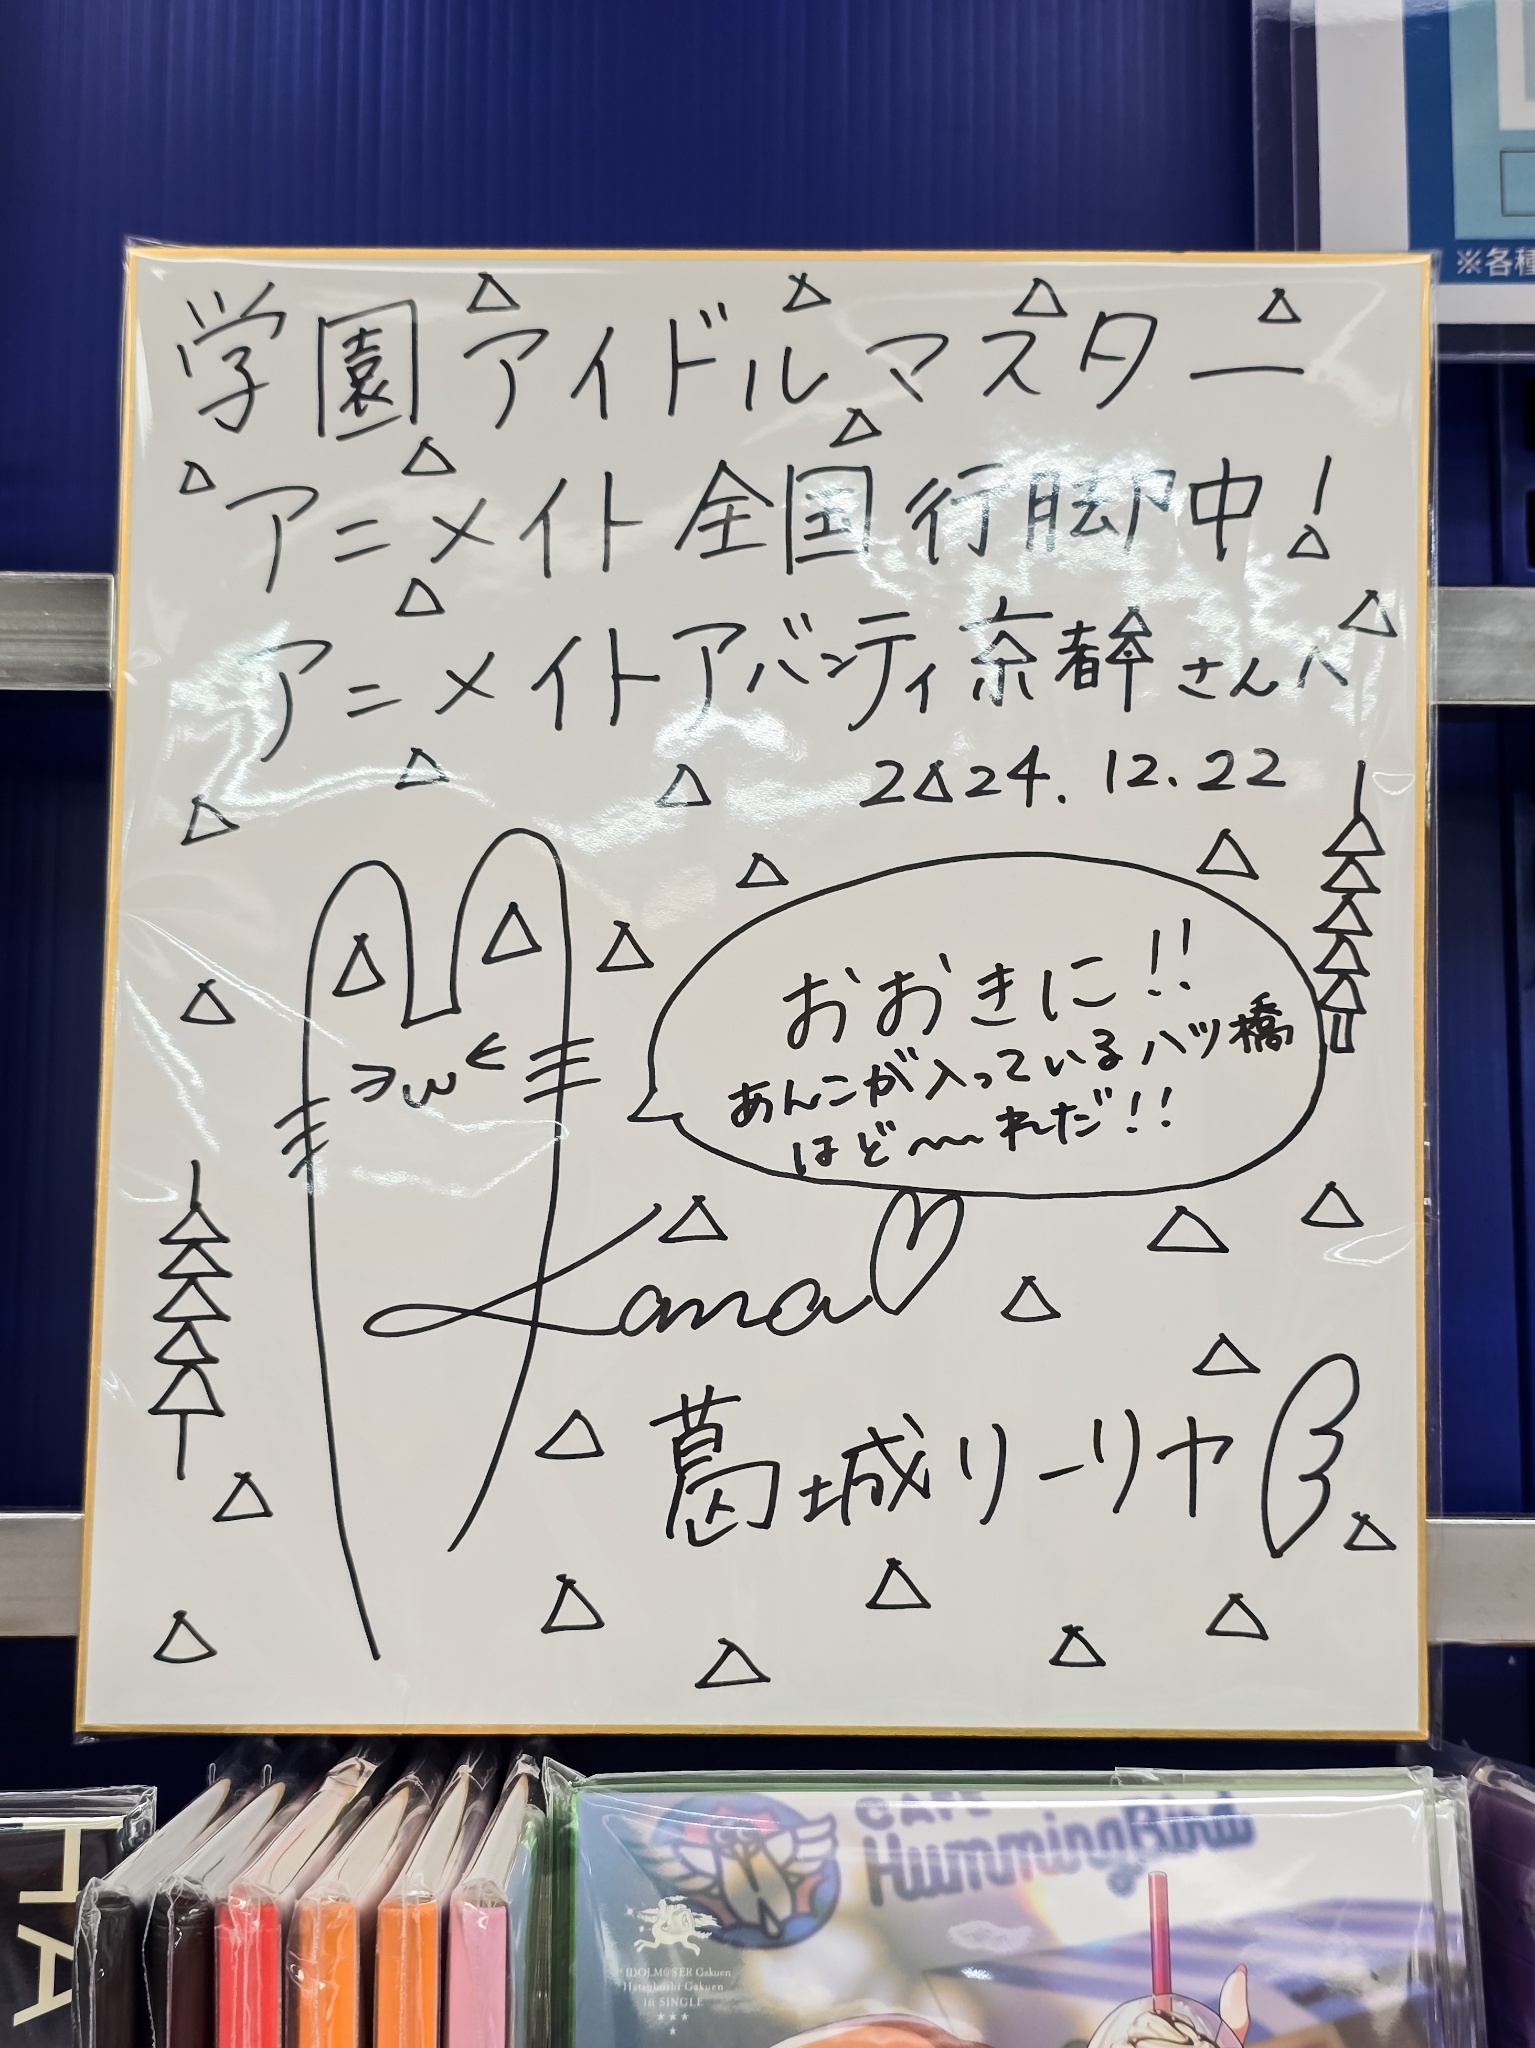 ※各種
学園アイドルマスター
アニメイト全国行脚中!
アニメイトアバンティ京都さんへ
2024.12.22
おおきに!!
あんこが入っている八ツ橋
はど〜れだ!!
Kana
葛城リーリヤ
HA
CAFE
HummingBird
IDOLM@STER Gakuen
Hatsuboshi Gakuen
1st SINGLE